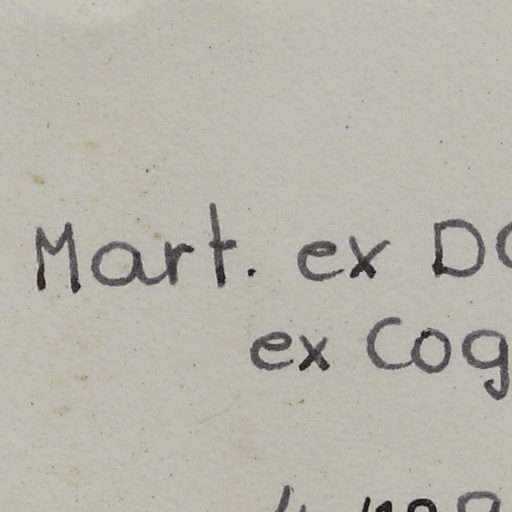 Mart. ex DC
ex Cog